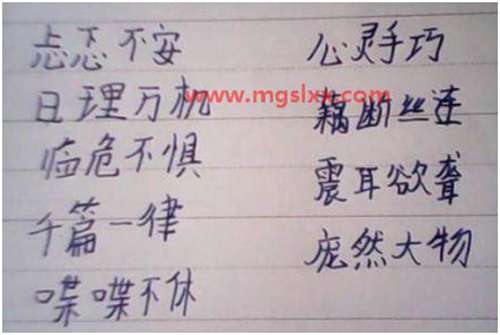 忐忑不安
日理万机
临危不惧
千篇一律
喋喋不休
心灵手巧
藕断丝连
震耳欲聋
庞然大物
www.mgslxx.com